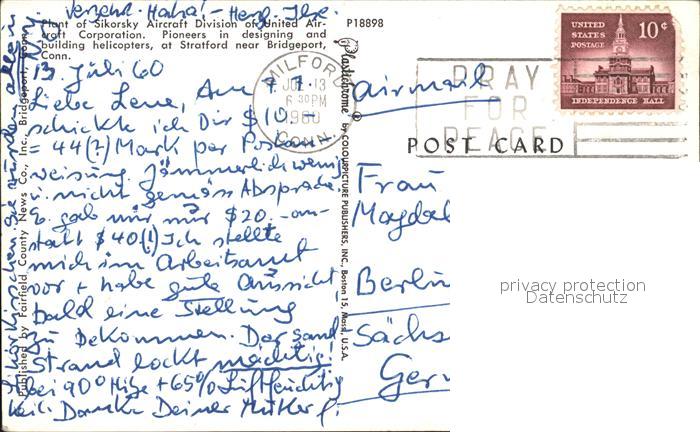 Verzeih. Haha! - Herzl. Ilse.
Plant of Sikorsky Aircraft Division of United Air-
craft Corporation. Pioneers in designing and
building helicopters, at Stratford near Bridgeport,
Conn.
P18898
13. Juli 60
Liebe Lene, Am 7.7.
schickte ich Dir $10.-
= 44(?) Mark per Postan-
weisung. Jämmerlich wenig
u. nicht gemäss Absprache.
E. gab mir nur $20.- an-
statt $40(!) Ich stellte
mich im Arbeitsamt
vor + habe gute Aussicht,
bald eine Stellung
zu bekommen. Der Sand
Strand lockt mächtig!
bei 90° Hitze + 65% Luftfeuchtig
keit. Danke Deiner Mutter f.
Published by Fairfield County News Co., Inc., Bridgeport, Conn.
Plastichrome ® by COLOURPICTURE PUBLISHERS, INC., Boston 15, Mass., U.S.A.
MILFORD
JUL 13
6 30 PM
1960
CONN.
PRAY
FOR
PEACE
UNITED
STATES
POSTAGE
10¢
INDEPENDENCE HALL
airmail
POST CARD
Frau
Magdal
Berlin
Sächs
Ger
privacy protection
Datenschutz